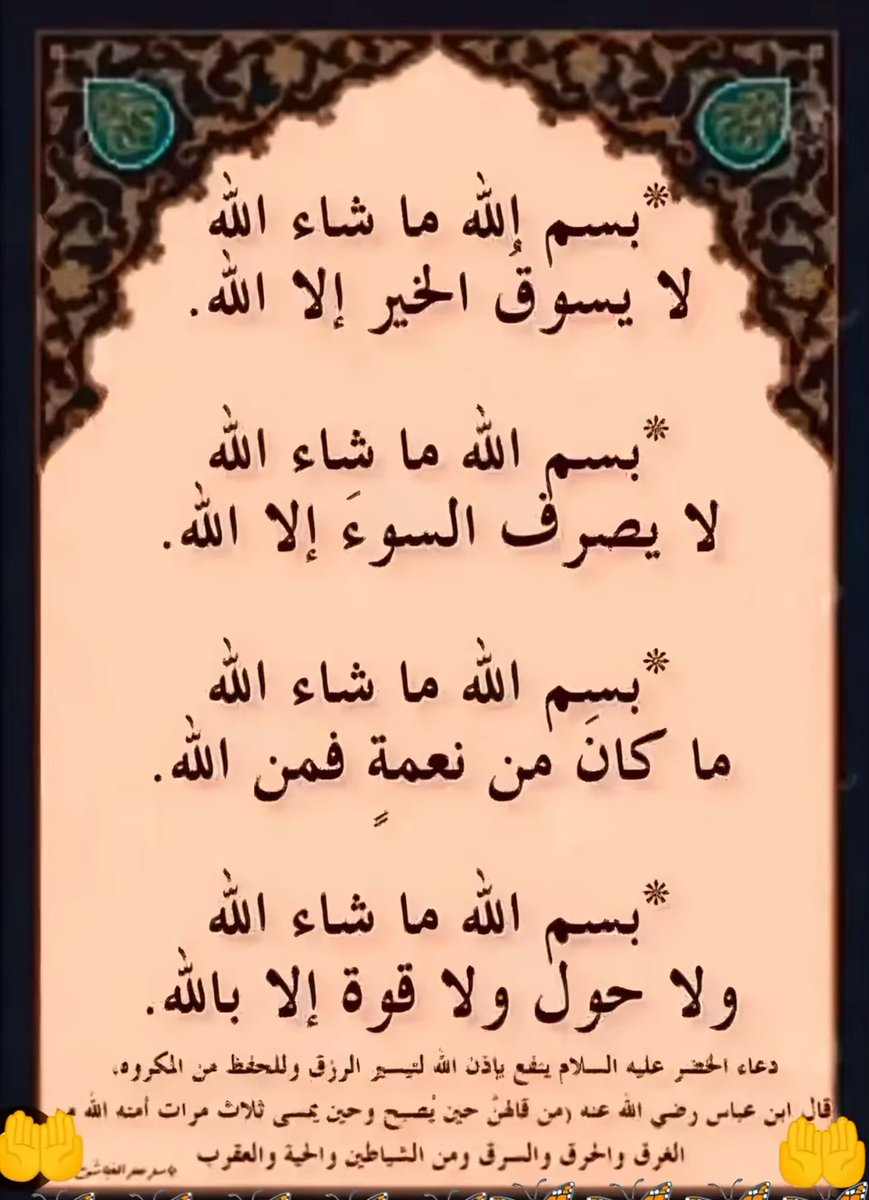 *بسم الله ما شاء الله
لا يسوق الخير إلا الله.
*بسم الله ما شاء الله
لا يصرف السوءَ إلا الله.
*بسم الله ما شاء الله
ما كانَ من نعمةٍ فمن الله.
*بسم الله ما شاء الله
ولا حول ولا قوة إلا بالله.
دعاء الخضر عليه السلام ينفع بإذن الله لتيسير الرزق وللحفظ من المكروه،
قال ابن عباس رضي الله عنه (من قالهنَّ حين يُصبح وحين يمسى ثلاث مرات أمنه الله
الغرق والحرق والسرق ومن الشياطين والحية والعقرب